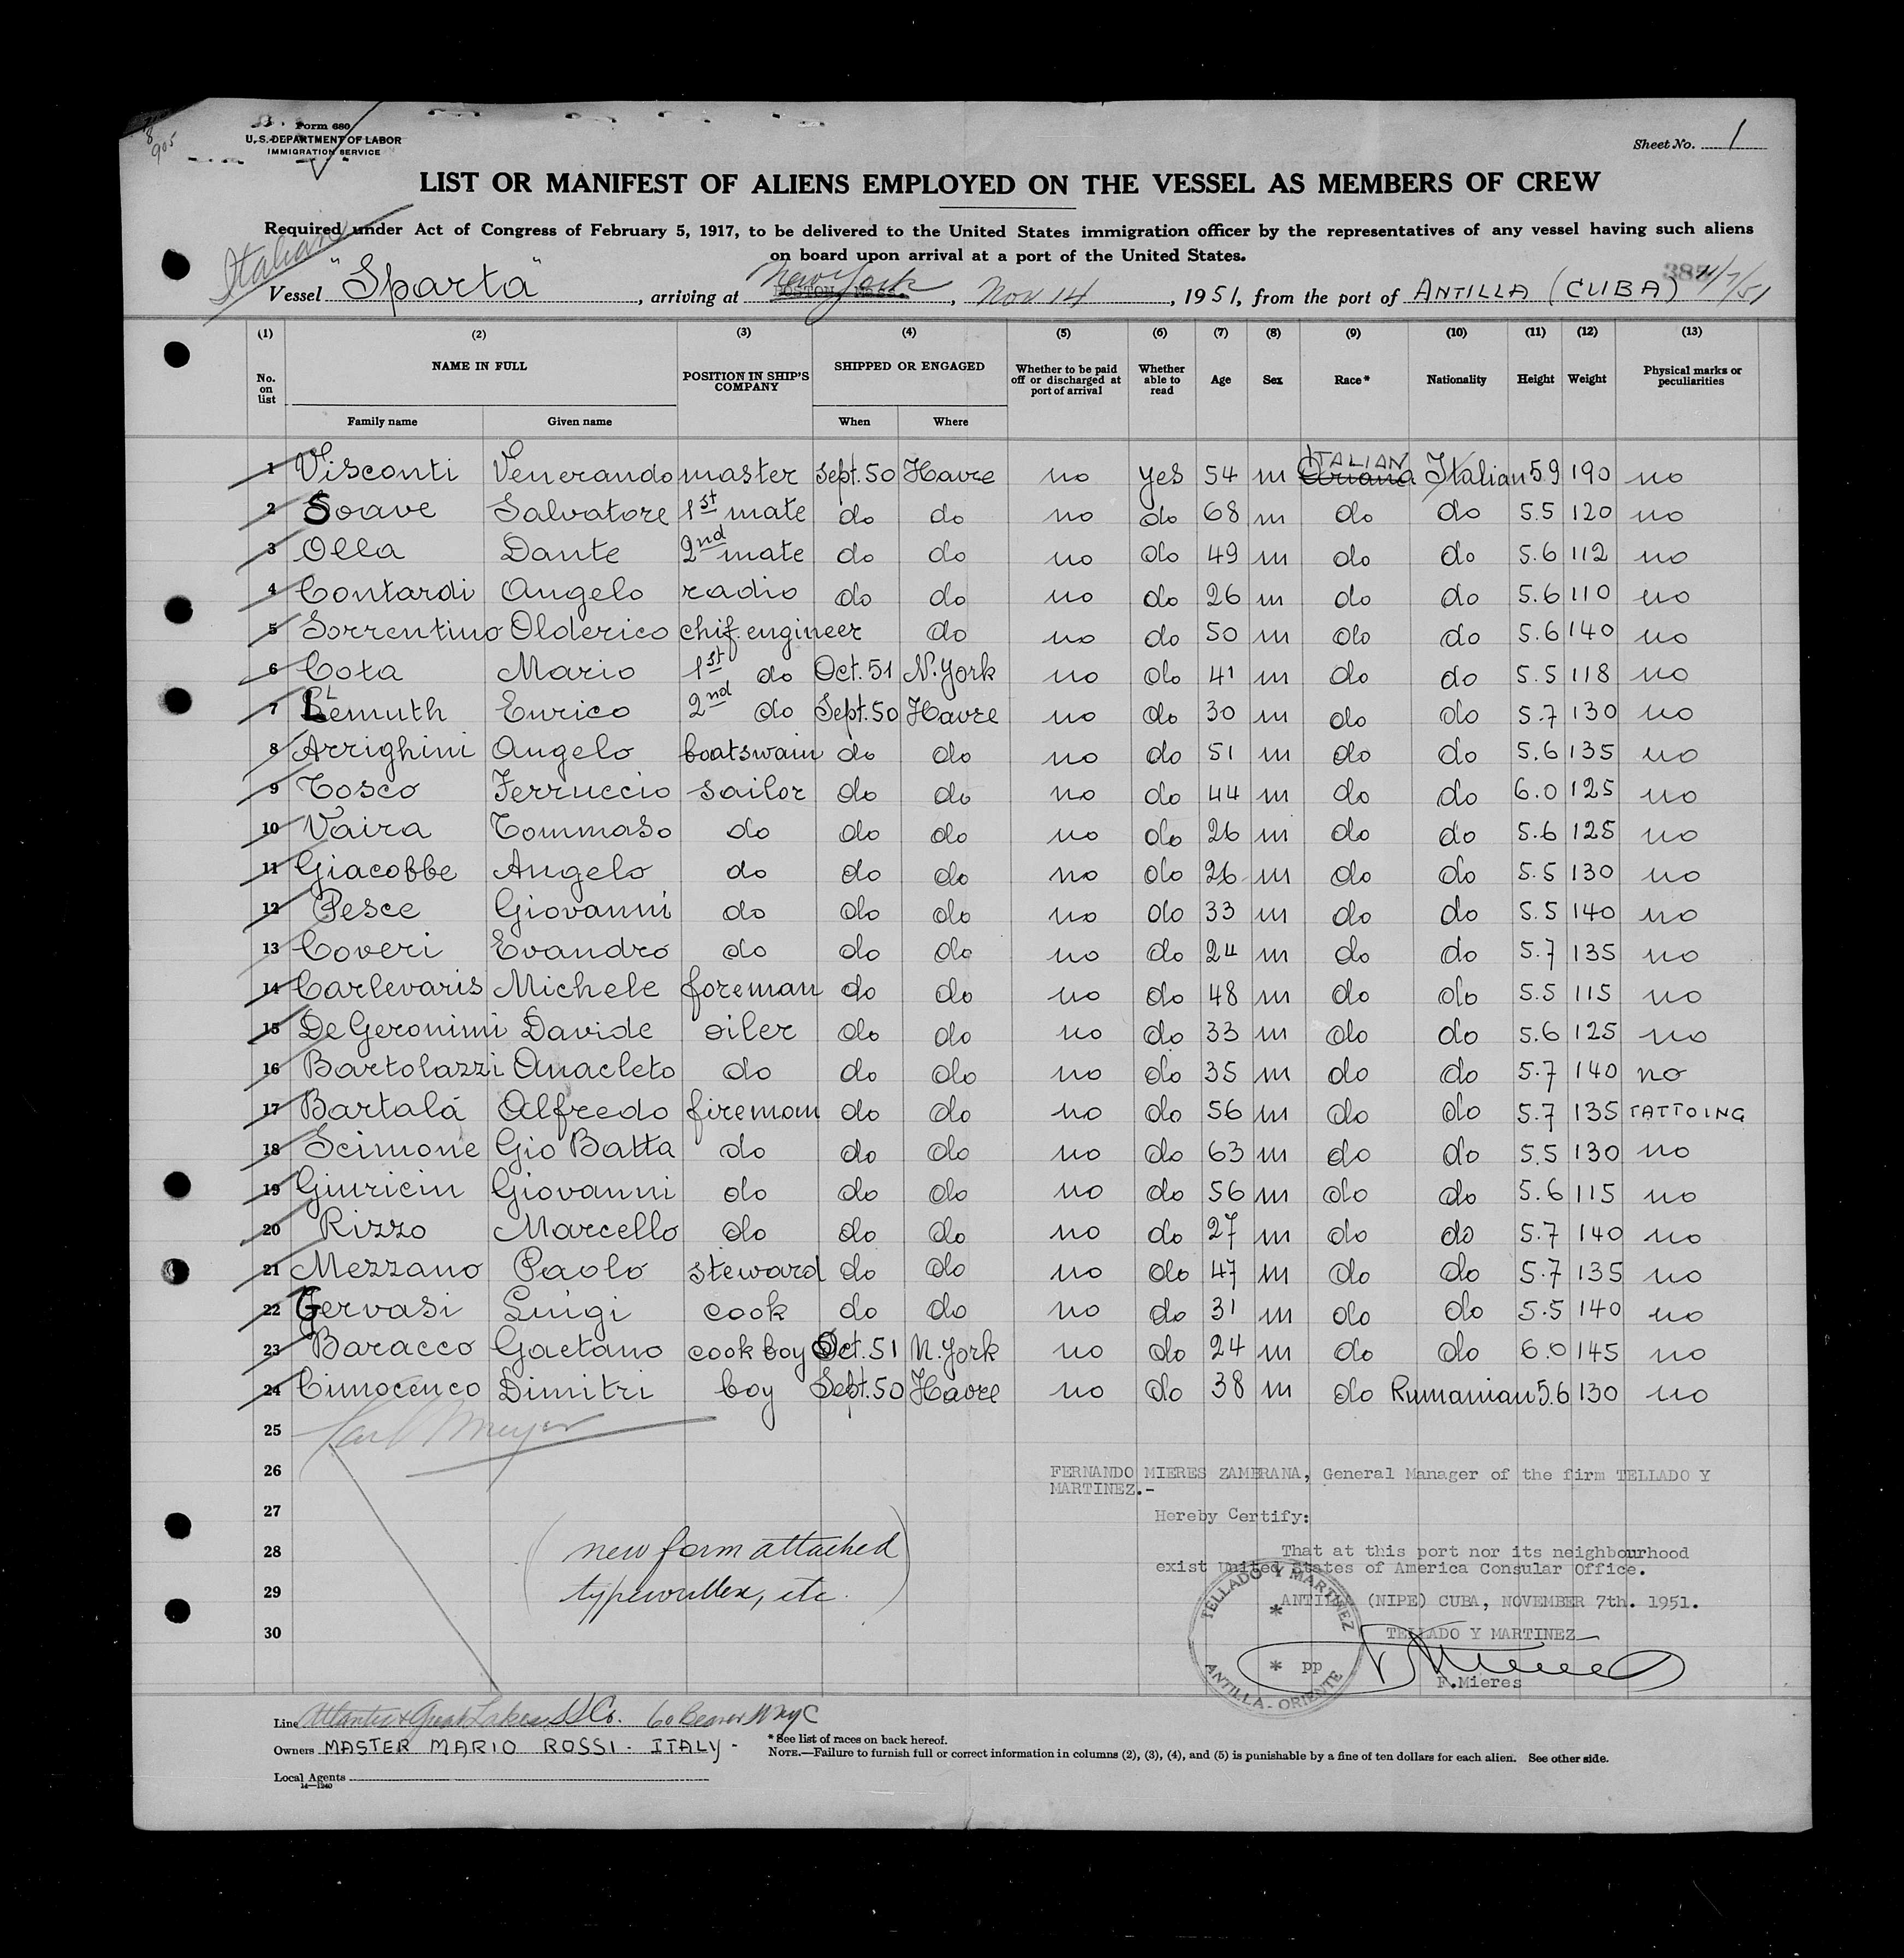 8
905
Form 680
U. S. DEPARTMENT OF LABOR
IMMIGRATION SERVICE
Sheet No. 1
LIST OR MANIFEST OF ALIENS EMPLOYED ON THE VESSEL AS MEMBERS OF CREW
Required under Act of Congress of February 5, 1917, to be delivered to the United States immigration officer by the representatives of any vessel having such aliens
on board upon arrival at a port of the United States.
Italian
Vessel "Sparta", arriving at New York, Nov 14, 1951, from the port of ANTILLA (CUBA) 11/7/51
(1) (2) (3) (4) (5) (6) (7) (8) (9) (10) (11) (12) (13)
No. on list NAME IN FULL POSITION IN SHIP'S COMPANY SHIPPED OR ENGAGED Whether to be paid off or discharged at port of arrival Whether able to read Age Sex Race* Nationality Height Weight Physical marks or peculiarities
Family name Given name When Where
1 Visconti Venerando master Sept. 50 Havre no yes 54 m ITALIAN Italian 5.9 190 no
2 Soave Salvatore 1st mate do do no do 68 m do do 5.5 120 no
3 Olla Dante 2nd mate do do no do 49 m do do 5.6 112 no
4 Contardi Angelo radio do do no do 26 m do do 5.6 110 no
5 Sorrentino Olderico chif. engineer do no do 50 m do do 5.6 140 no
6 Cota Mario 1st do Oct. 51 N. York no do 41 m do do 5.5 118 no
7 Lemuth Enrico 2nd do Sept. 50 Havre no do 30 m do do 5.7 130 no
8 Arrighini Angelo boatswain do do no do 51 m do do 5.6 135 no
9 Tosco Ferruccio sailor do do no do 44 m do do 6.0 125 no
10 Vaira Tommaso do do do no do 26 m do do 5.6 125 no
11 Giacobbe Angelo do do do no do 26 m do do 5.5 130 no
12 Pesce Giovanni do do do no do 33 m do do 5.5 140 no
13 Coveri Evandro do do do no do 24 m do do 5.7 135 no
14 Carlevaris Michele foreman do do no do 48 m do do 5.5 115 no
15 De Geronimi Davide oiler do do no do 33 m do do 5.6 125 no
16 Bartolazzi Anacleto do do do no do 35 m do do 5.7 140 no
17 Bartalá Alfredo fireman do do no do 56 m do do 5.7 135 TATTOING
18 Scimone Gio Batta do do do no do 63 m do do 5.5 130 no
19 Giuricin Giovanni do do do no do 56 m do do 5.6 115 no
20 Rizzo Marcello do do do no do 27 m do do 5.7 140 no
21 Mezzano Paolo steward do do no do 47 m do do 5.7 135 no
22 Gervasi Luigi cook do do no do 31 m do do 5.5 140 no
23 Baracco Gaetano cook boy Oct. 51 N. York no do 24 m do do 6.0 145 no
24 Cimocenco Dimitri boy Sept. 50 Havre no do 38 m do Rumanian 5.6 130 no
25 Karl Meyer
26
27
28
29
30
(new form attached
typewritten, etc.)
FERNANDO MIERES ZAMBRANA, General Manager of the firm TELLADO Y
MARTINEZ.-
Hereby Certify:
That at this port nor its neighbourhood
exist United States of America Consular Office.
ANTILLA (NIPE) CUBA, NOVEMBER 7th. 1951.
TELLADO Y MARTINEZ
pp
F. Mieres
TELLADO Y MARTINEZ
ANTILLA - ORIENTE
Line Atlantic & Great Lakes SS Co. 60 Beaver St NYC
Owners MASTER MARIO ROSSI - ITALY -
Local Agents
14—1240
* See list of races on back hereof.
NOTE.—Failure to furnish full or correct information in columns (2), (3), (4), and (5) is punishable by a fine of ten dollars for each alien. See other side.